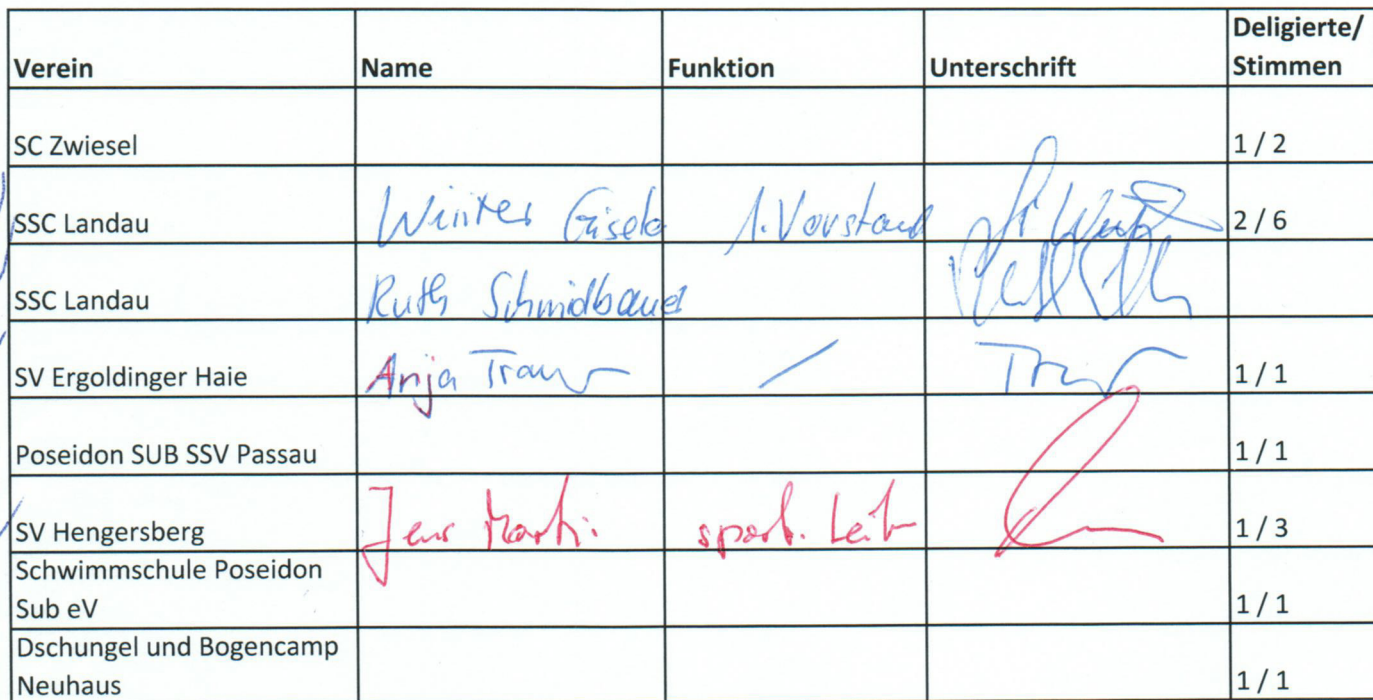 Verein Name Funktion Unterschrift Deligierte/
Stimmen
SC Zwiesel 1 / 2
SSC Landau Winter Gisela 1. Vorstand 2 / 6
SSC Landau Ruth Schmidbauer
SV Ergoldinger Haie Anja / 1 / 1
Poseidon SUB SSV Passau 1 / 1
SV Hengersberg sport. Leit 1 / 3
Schwimmschule Poseidon
Sub eV 1 / 1
Dschungel und Bogencamp
Neuhaus 1 / 1